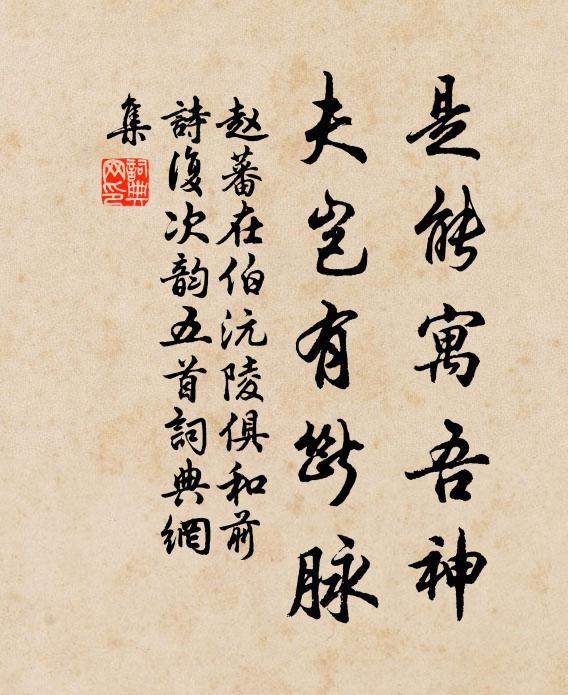 是能寓吾神
夫岂有断脉
赵蕃在伯沅陵俱和前
詩復次韵五首詞典網
集
詞典网印